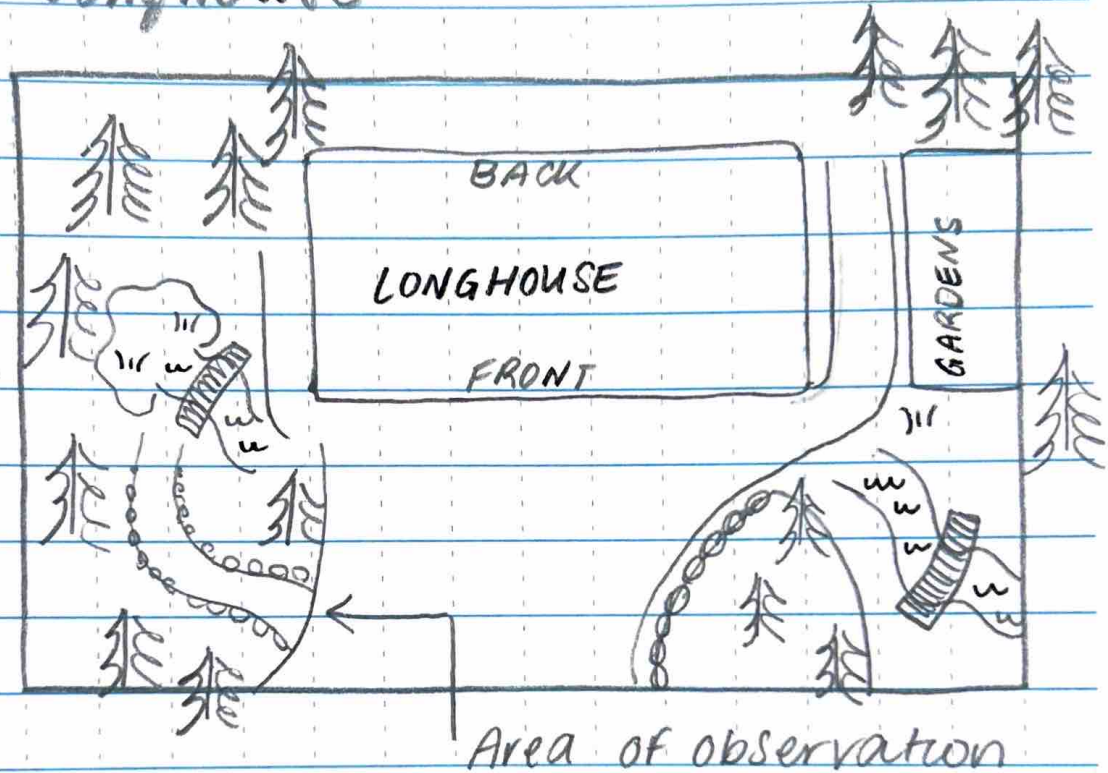 Longhouse
BACK
LONGHOUSE
FRONT
GARDENS
Area of observation